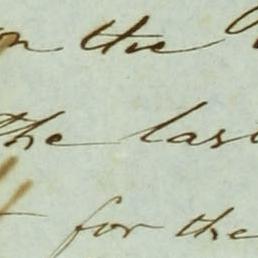 on the
The las
for the